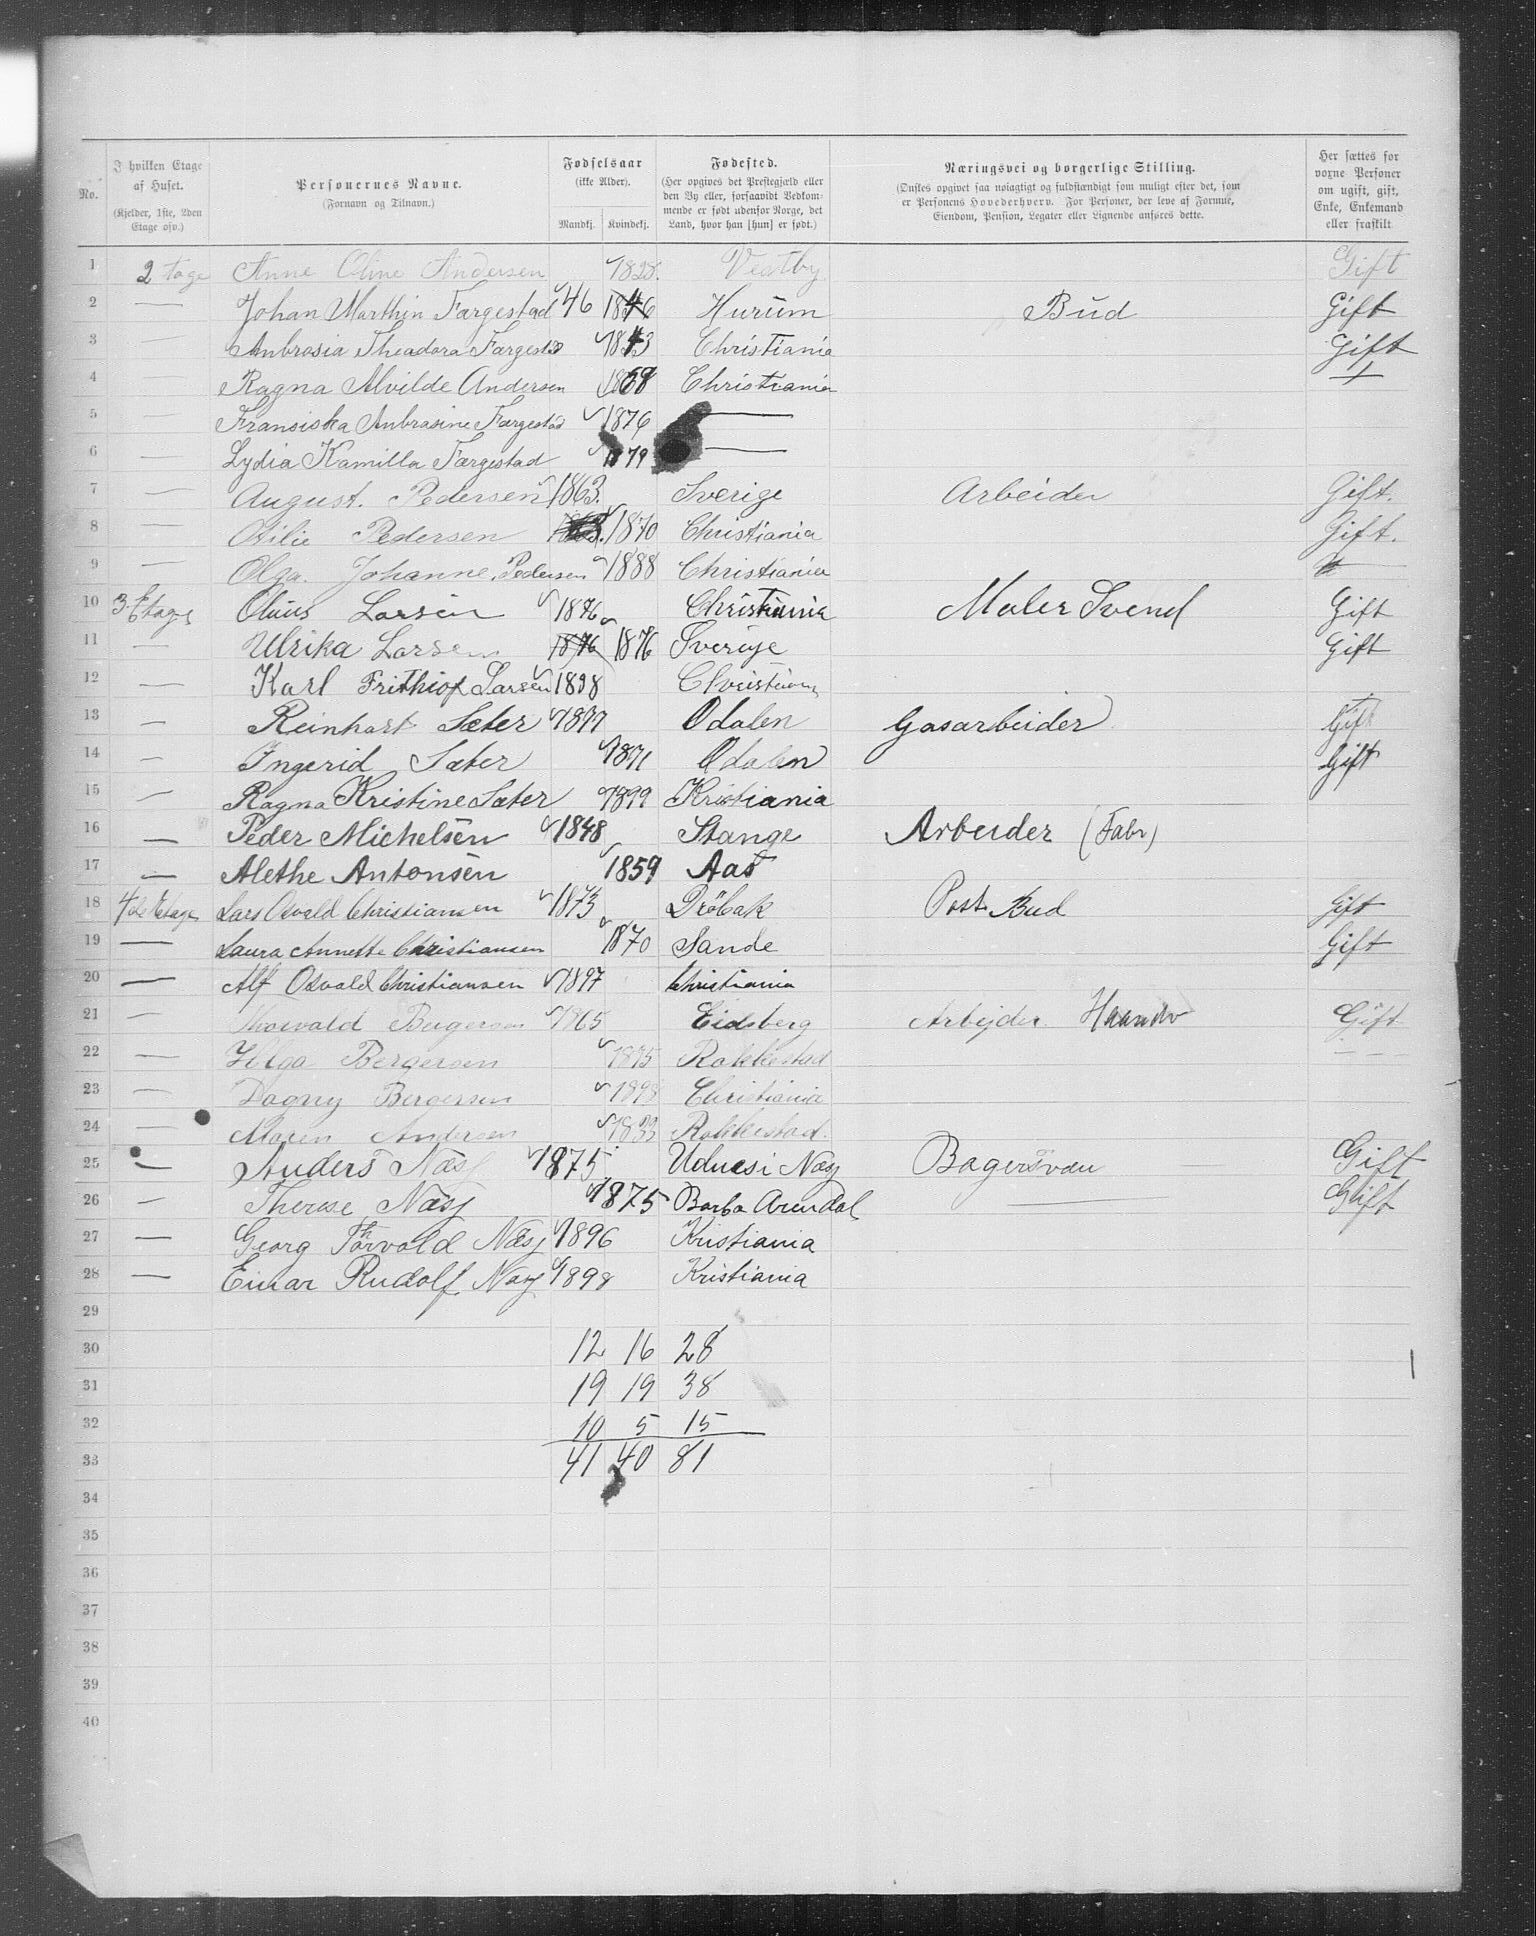 No.
I hvilken Etage af Huset. (Kjelder, 1ste, 2den Etage osv.)
Personernes Navne. (Fornavn og Tilnavn.)
Fødselsaar (ikke Alder). Mandkj. Kvindekj.
Fødested. (Her opgives det Prestegjæld eller den By eller, forsaavidt Vedkommende er født udenfor Norge, det Land, hvor han [hun] er født.)
Næringsvei og borgerlige Stilling. (Ønskes opgivet saa nøiagtigt og fuldstændigt som muligt efter det, som er Personens Hovederhverv. For Personer, der leve af Formue, Eiendom, Pension, Legater eller Lignende anføres dette.)
Her sættes for voxne Personer om ugift, gift, Enke, Enkemand eller fraskilt
1 2 tage Anne Oline Andersen 1828. Vestby Gift
2 — Johan Marthin Færgestad 46 1846 Hurum Bud Gift
3 — Anbrosia Theadora Færgestad 1843 Christiania Gift
4 — Ragna Alvilde Andersen 1868 Christiania +
5 — Fransiska Anbrosine Færgestad 1876 —
6 — Lydia Kamilla Færgestad 1879 —
7 — August. Pedersen 1863. Sverige Arbeider Gift.
8 — Otilie Pedersen 1870 Christiania Gift.
9 — Olga. Johanne. Pedersen 1888 Christiania
10 3 Etage Olaus Larsen 1876 Christiania Maler Svend Gift
11 — Ulrika Larsen 1876 1876 Sverige Gift
12 — Karl Frithiof Larsen 1898 Christiania
13 — Reinhart Sæter 1877 Odalen Gasarbeider Gift
14 — Ingerid Sæter 1871 Odalen Gift
15 — Ragna Kristine Sæter 1899 Kristiania
16 — Peder Michelsen 1848 Stange Arbeider (Fabr)
17 — Alethe Antonsen 1859 Aas
18 4de Etage Lars Osvald Christiansen 1873 Drøbak Post Bud Gift
19 — Laura Annette Christiansen 1870 Sande Gift
20 — Alf Osvald Christiansen 1897 Christiania
21 — Thorvald Bergersen 1865 Eidsberg Arbejder Haandv Gift
22 — Helga Bergersen 1875 Rakkestad — —
23 — Dagny Bergersen 1898 Christiania
24 — Maren Andersen 1833 Rakkestad.
25 — Anders Næsj 1875 Næsj Gift
26 — Therese Næsj 1875 Barbo Arendal — Gift
27 — Georg Thorvald Næsj 1896 Kristiania
28 — Einar Rudolf Næsj 1898 Kristiania
29
30 12 16 28
31 19 19 38
32 10 5 15
33 41 40 81
34
35
36
37
38
39
40